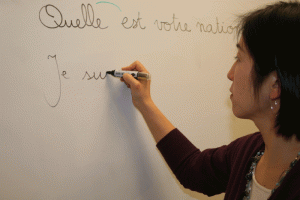 Quelle est votre nation
Je su